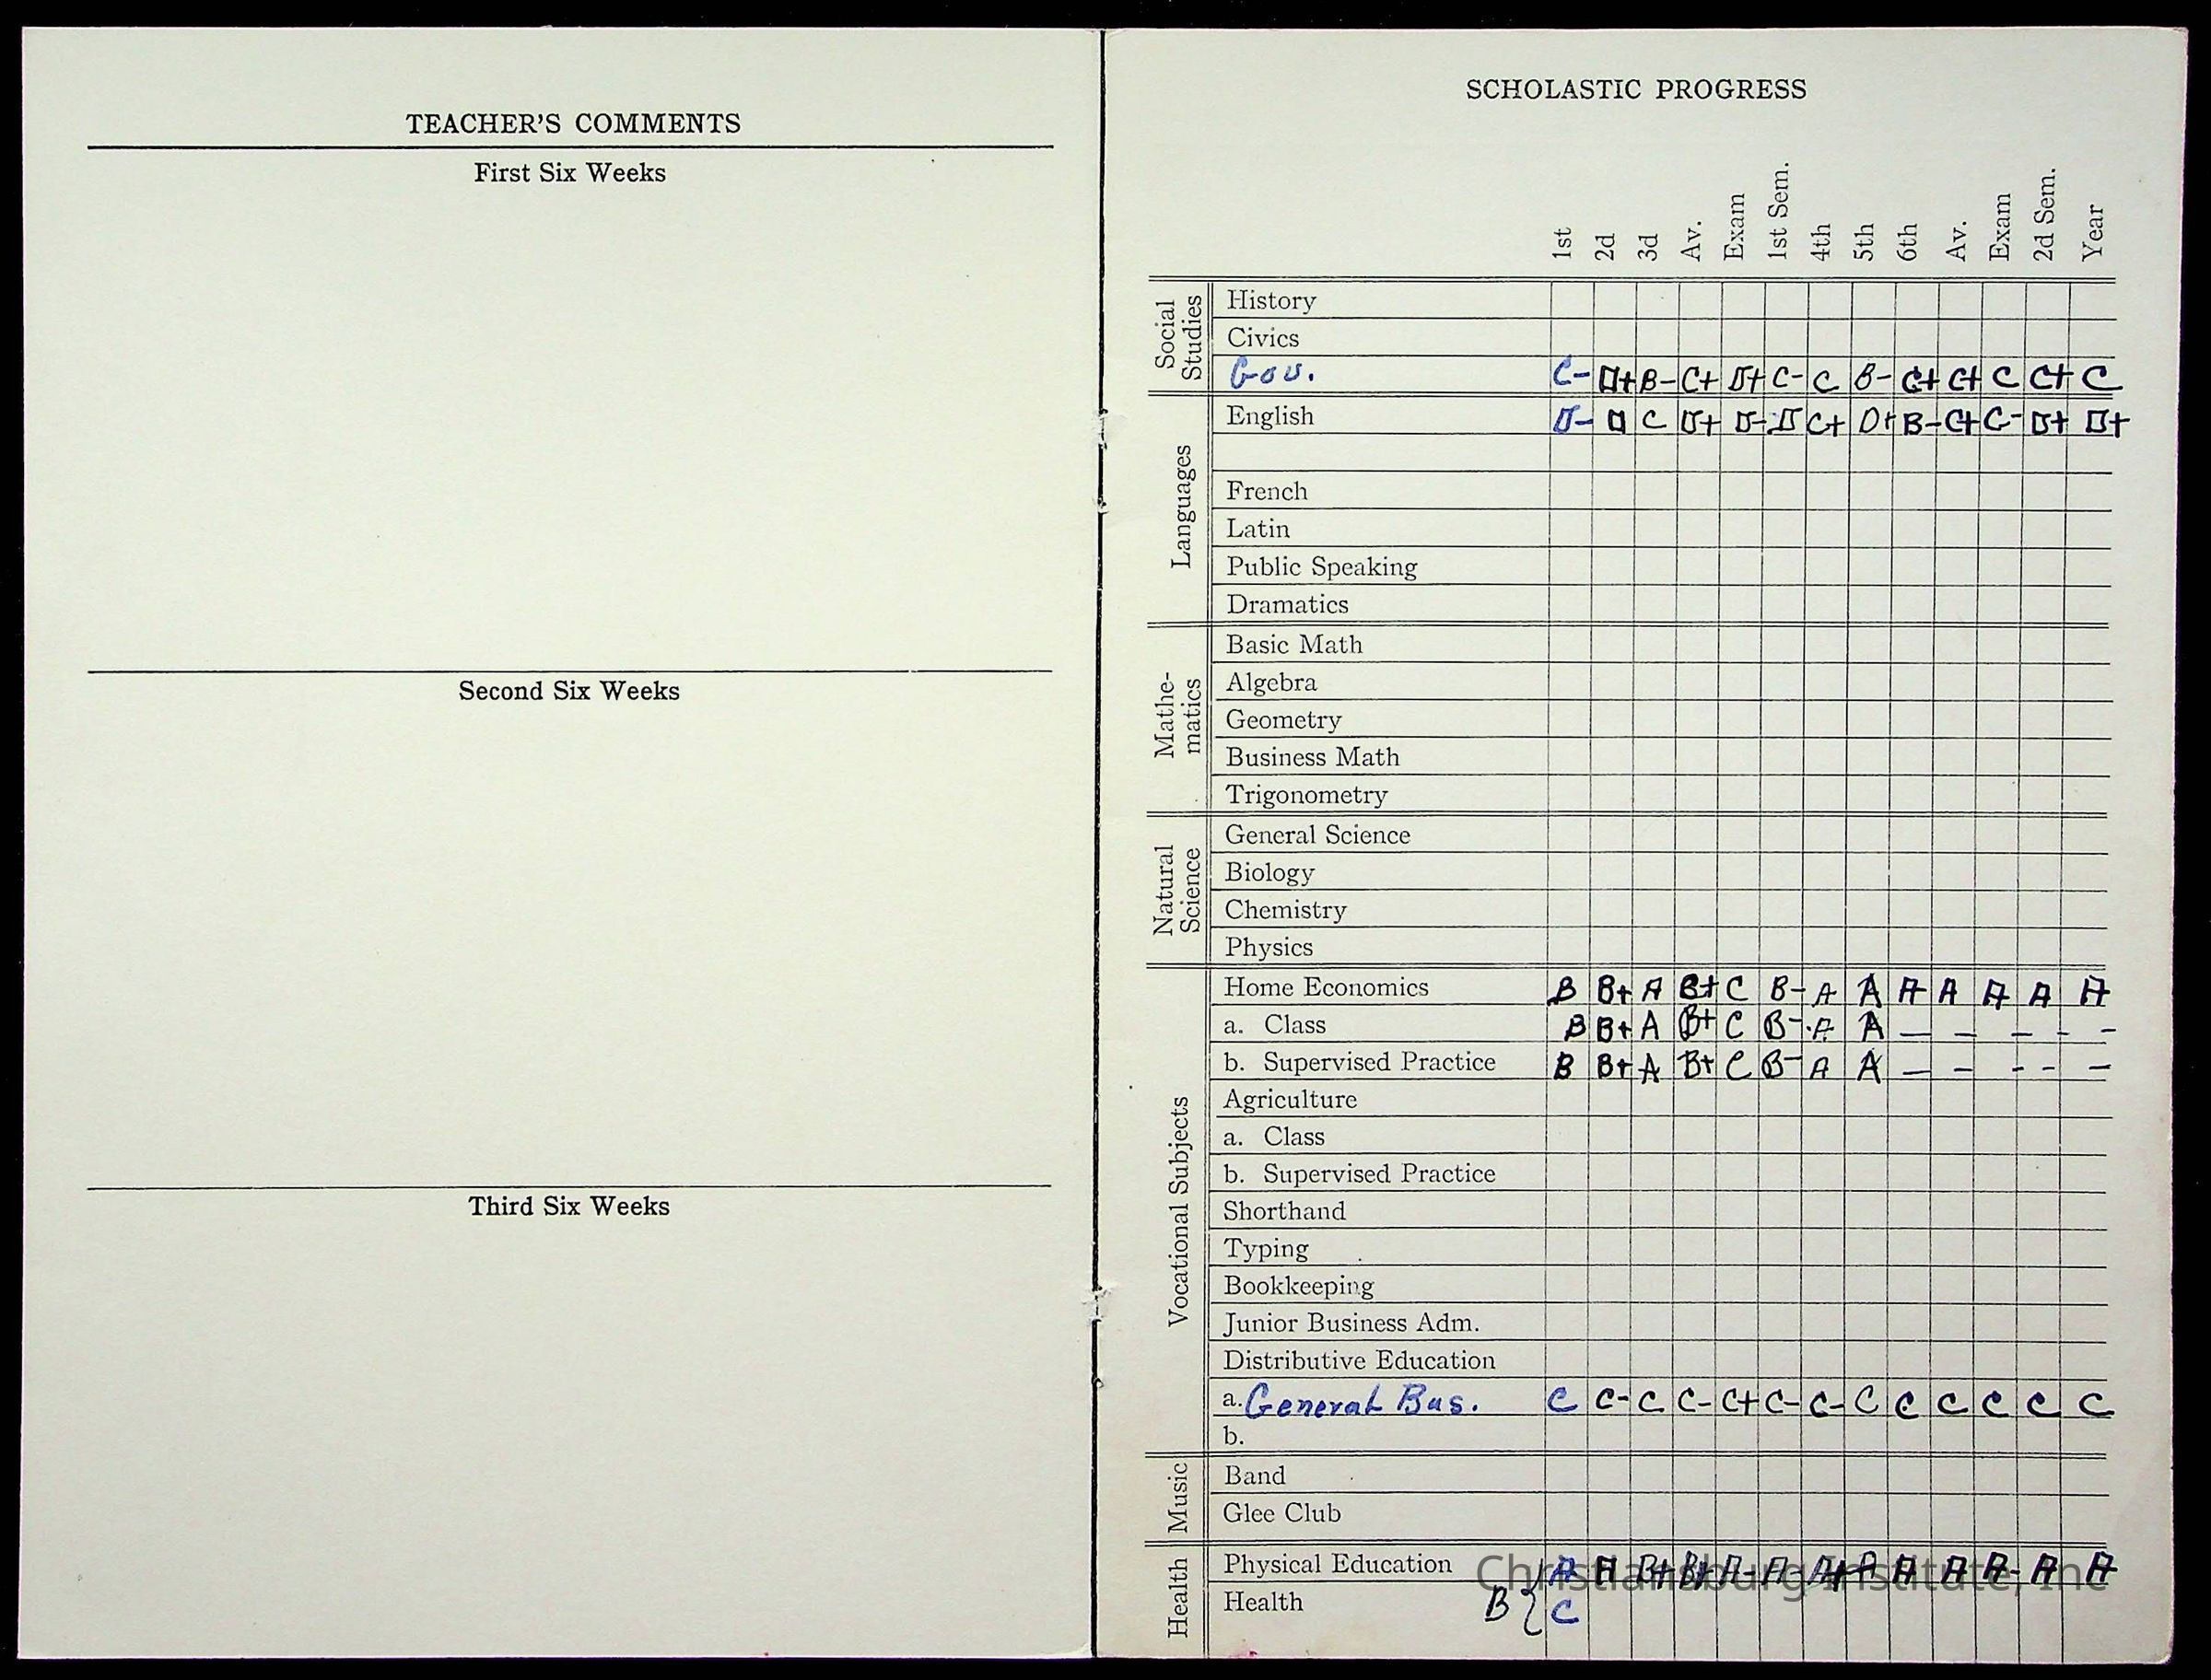 TEACHER'S COMMENTS
First Six Weeks
Second Six Weeks
Third Six Weeks
SCHOLASTIC PROGRESS
1st 2d 3d Av. Exam 1st Sem. 4th 5th 6th Av. Exam 2d Sem. Year
Social Studies
History
Civics
Gov. C- D+ B- C+ D+ C- C B- C+ C+ C C+ C
Languages
English D- D C D+ D- D C+ D+ B- C+ C- D+ D+
French
Latin
Public Speaking
Dramatics
Mathe-
matics
Basic Math
Algebra
Geometry
Business Math
Trigonometry
Natural Science
General Science
Biology
Chemistry
Physics
Vocational Subjects
Home Economics B B+ A B+ C B- A A A A A A A
a. Class B B+ A B+ C B- A A — — — - -
b. Supervised Practice B B+ A B+ C B- A A — — - - —
Agriculture
a. Class
b. Supervised Practice
Shorthand
Typing
Bookkeeping
Junior Business Adm.
Distributive Education
a. General Bus. C C- C C- C+ C- C- C C C C C C
b.
Music
Band
Glee Club
Health
Physical Education A A B+ B+ A- A A A A A- A A
Health B { C
Christiansburg Institute, Inc